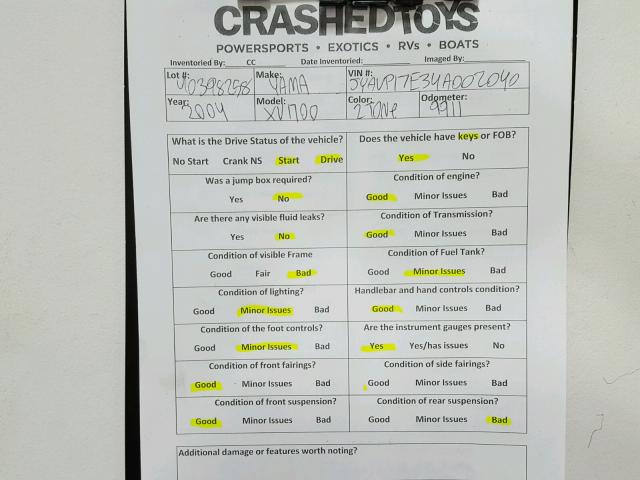 CRASHEDTOYS
POWERSPORTS • EXOTICS • RVs • BOATS
Inventoried By: CC Date Inventoried: Imaged By:
Lot #: Make: YAMA VIN #:
Year: 2004 Model: XV1700 Color: 2TONE Odometer: 9911
What is the Drive Status of the vehicle? Does the vehicle have keys or FOB?
No Start Crank NS Start Drive Yes No
Was a jump box required? Condition of engine?
Yes No Good Minor Issues Bad
Are there any visible fluid leaks? Condition of Transmission?
Yes No Good Minor Issues Bad
Condition of visible Frame Condition of Fuel Tank?
Good Fair Bad Good Minor Issues Bad
Condition of lighting? Handlebar and hand controls condition?
Good Minor Issues Bad Good Minor Issues Bad
Condition of the foot controls? Are the instrument gauges present?
Good Minor Issues Bad Yes Yes/has issues No
Condition of front fairings? Condition of side fairings?
Good Minor Issues Bad Good Minor Issues Bad
Condition of front suspension? Condition of rear suspension?
Good Minor Issues Bad Good Minor Issues Bad
Additional damage or features worth noting?